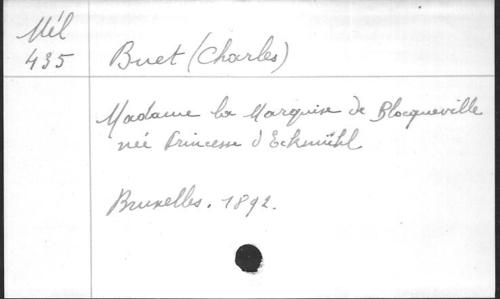 Mél
435
Buet (Charles)
Madame la Marquise de Blocqueville
née Princesse d'Eckmühl
Bruxelles. 1892.